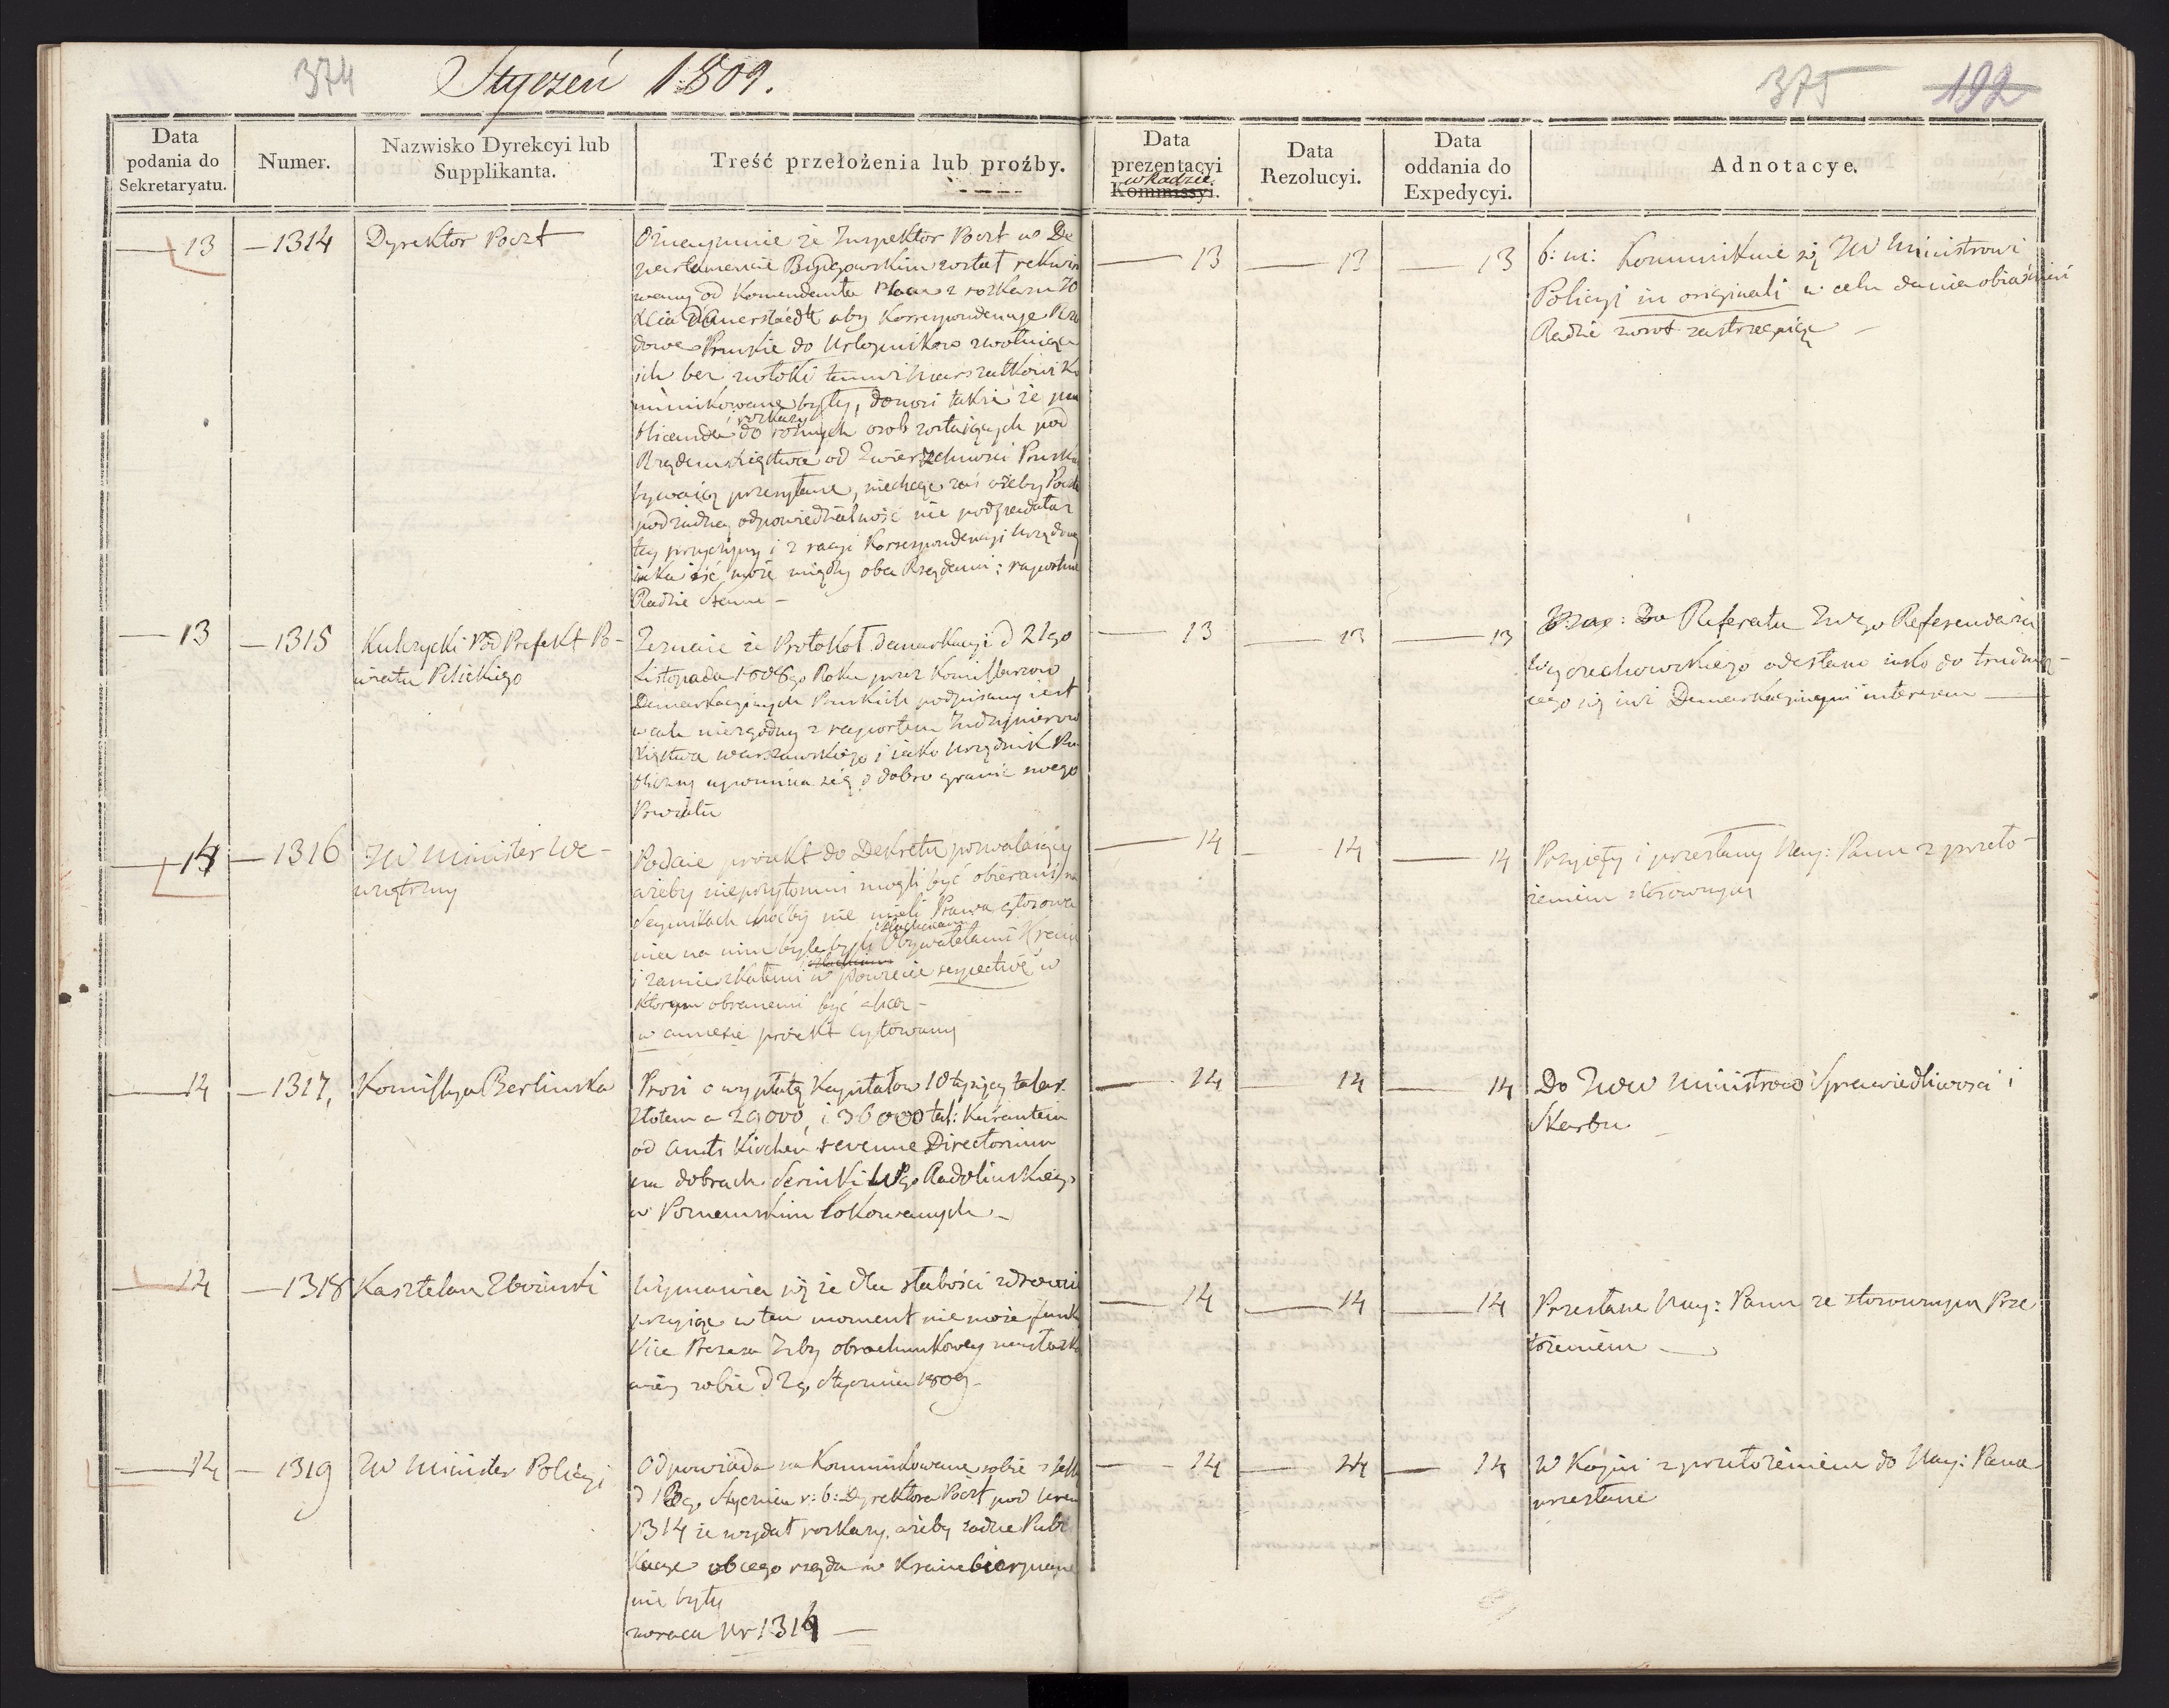 374
Styczeń 1809.
375
192
Data podania do Sekretaryatu.
Numer.
Nazwisko Dyrekcyi lub Supplikanta.
Treść przełożenia lub proźby.
Data prezentacyi w Radzie Kommissyi.
Data Rezolucyi.
Data oddania do Expedycyi.
Adnotacye.
13
1314
Dyrektor Poczt
Oznaymuie że Inspektor Poczt w De
partamencie Bydgowskim został rekwiro
wany od Komendanta Placu z rozkazu
Xcia D'Auerstaedt aby Korrespondencye Rzą
dowe Pruskie do Urlopnikow zwołuiące
ich bez zwłoki temuż Marszałkowi Ko
munikowane były, donosi także że pu
blicanda i rozkazy do rożnych osob zostaiących pod
Rządem Xięstwa od Zwierzchności Pruskiey
bywaią przesyłane, niechcąc zaś ażeby Poczta
pod żadną odpowiedzialność nie podpadała z
tey przyczyny i z racyi Korrespondencyi Urzędowey
iaka iść może między oba Rządami; raport
Radzie
13
13
13
b: m: Kommunikuie się JW Ministrowi
Policyi in originali w celu dania obiaśnień
Radzie zwrot zastrzegaiąc
13
1315
Kukrycki Pod Prefekt Po-
wiatu Pilickiego
Zeznaie że Protokół demarkacyi d 21go
Listopada 1808go Roku przez Komissarzow
Demarkacyinych Pruskich podpisany iest
wcale niezgodny z raportem Indzynierow
Xięstwa Warszawskiego i iako Urzędnik Pu
bliczny upomina się o dobro granic swego
Powiatu
13
13
13
Do Referatu JWgo Referendarza
Wyczechowskiego odesłano iako do trudnią-
cego się iuż Demarkacyinym interessem
14
1316
JW Minister We-
wnętrzny
Podaie proiekt do Dekretu pozwalaiący
ażeby nieprzytomni mogli być obierani na
Seymikach choćby nie mieli Prawa głosowa
nia na nim byleby byli szlachcicami Obywatelami Kraiu
i zamieszkałemi w powiecie respective w
ktorym obranemi być chcą -
w annexie proiekt cytowany
14
14
14
Przyięty i przesłany Nay: Panu z przeło-
żeniem stosownym
14
1317,
Komissya Berlinska
Prosi o wypłatę Kapitałow 10 tysięcy talar.
złotem a 29000, i 36000 tal: Kurantem
od Amts Kirchen revenue Directorium
na dobrach Sernikí WPgo Radolinskiego
w Poznanskim lokowanych -
14
14
14
Do JWW Ministrow Sprawiedliwości i
Skarbu
14
1318
Kasztelan Zboinski
Wymawia się że dla słabości zdrowia
przyiąć w ten moment nie może funk
Vice Prezesa Izby obrachunkowey
sobie d 2go Stycznia 1809.
14
14
14
Przesłane Nay: Panu ze stosownym Prze
łożeniem
14
1319
JW Minister Policyi
Odpowiada na Kommunikowane sobie
d 13go Stycznia r: b: Dyrektora Poczt pod Nrem
1314 że wydał rozkazy, ażeby żadne Publi
kacye obcego rządu w Kraiu cierpiane
nie były
zwraca Nr 1314
14
14
14
W Kopii z przełożeniem do Nay: Pana
przesłane